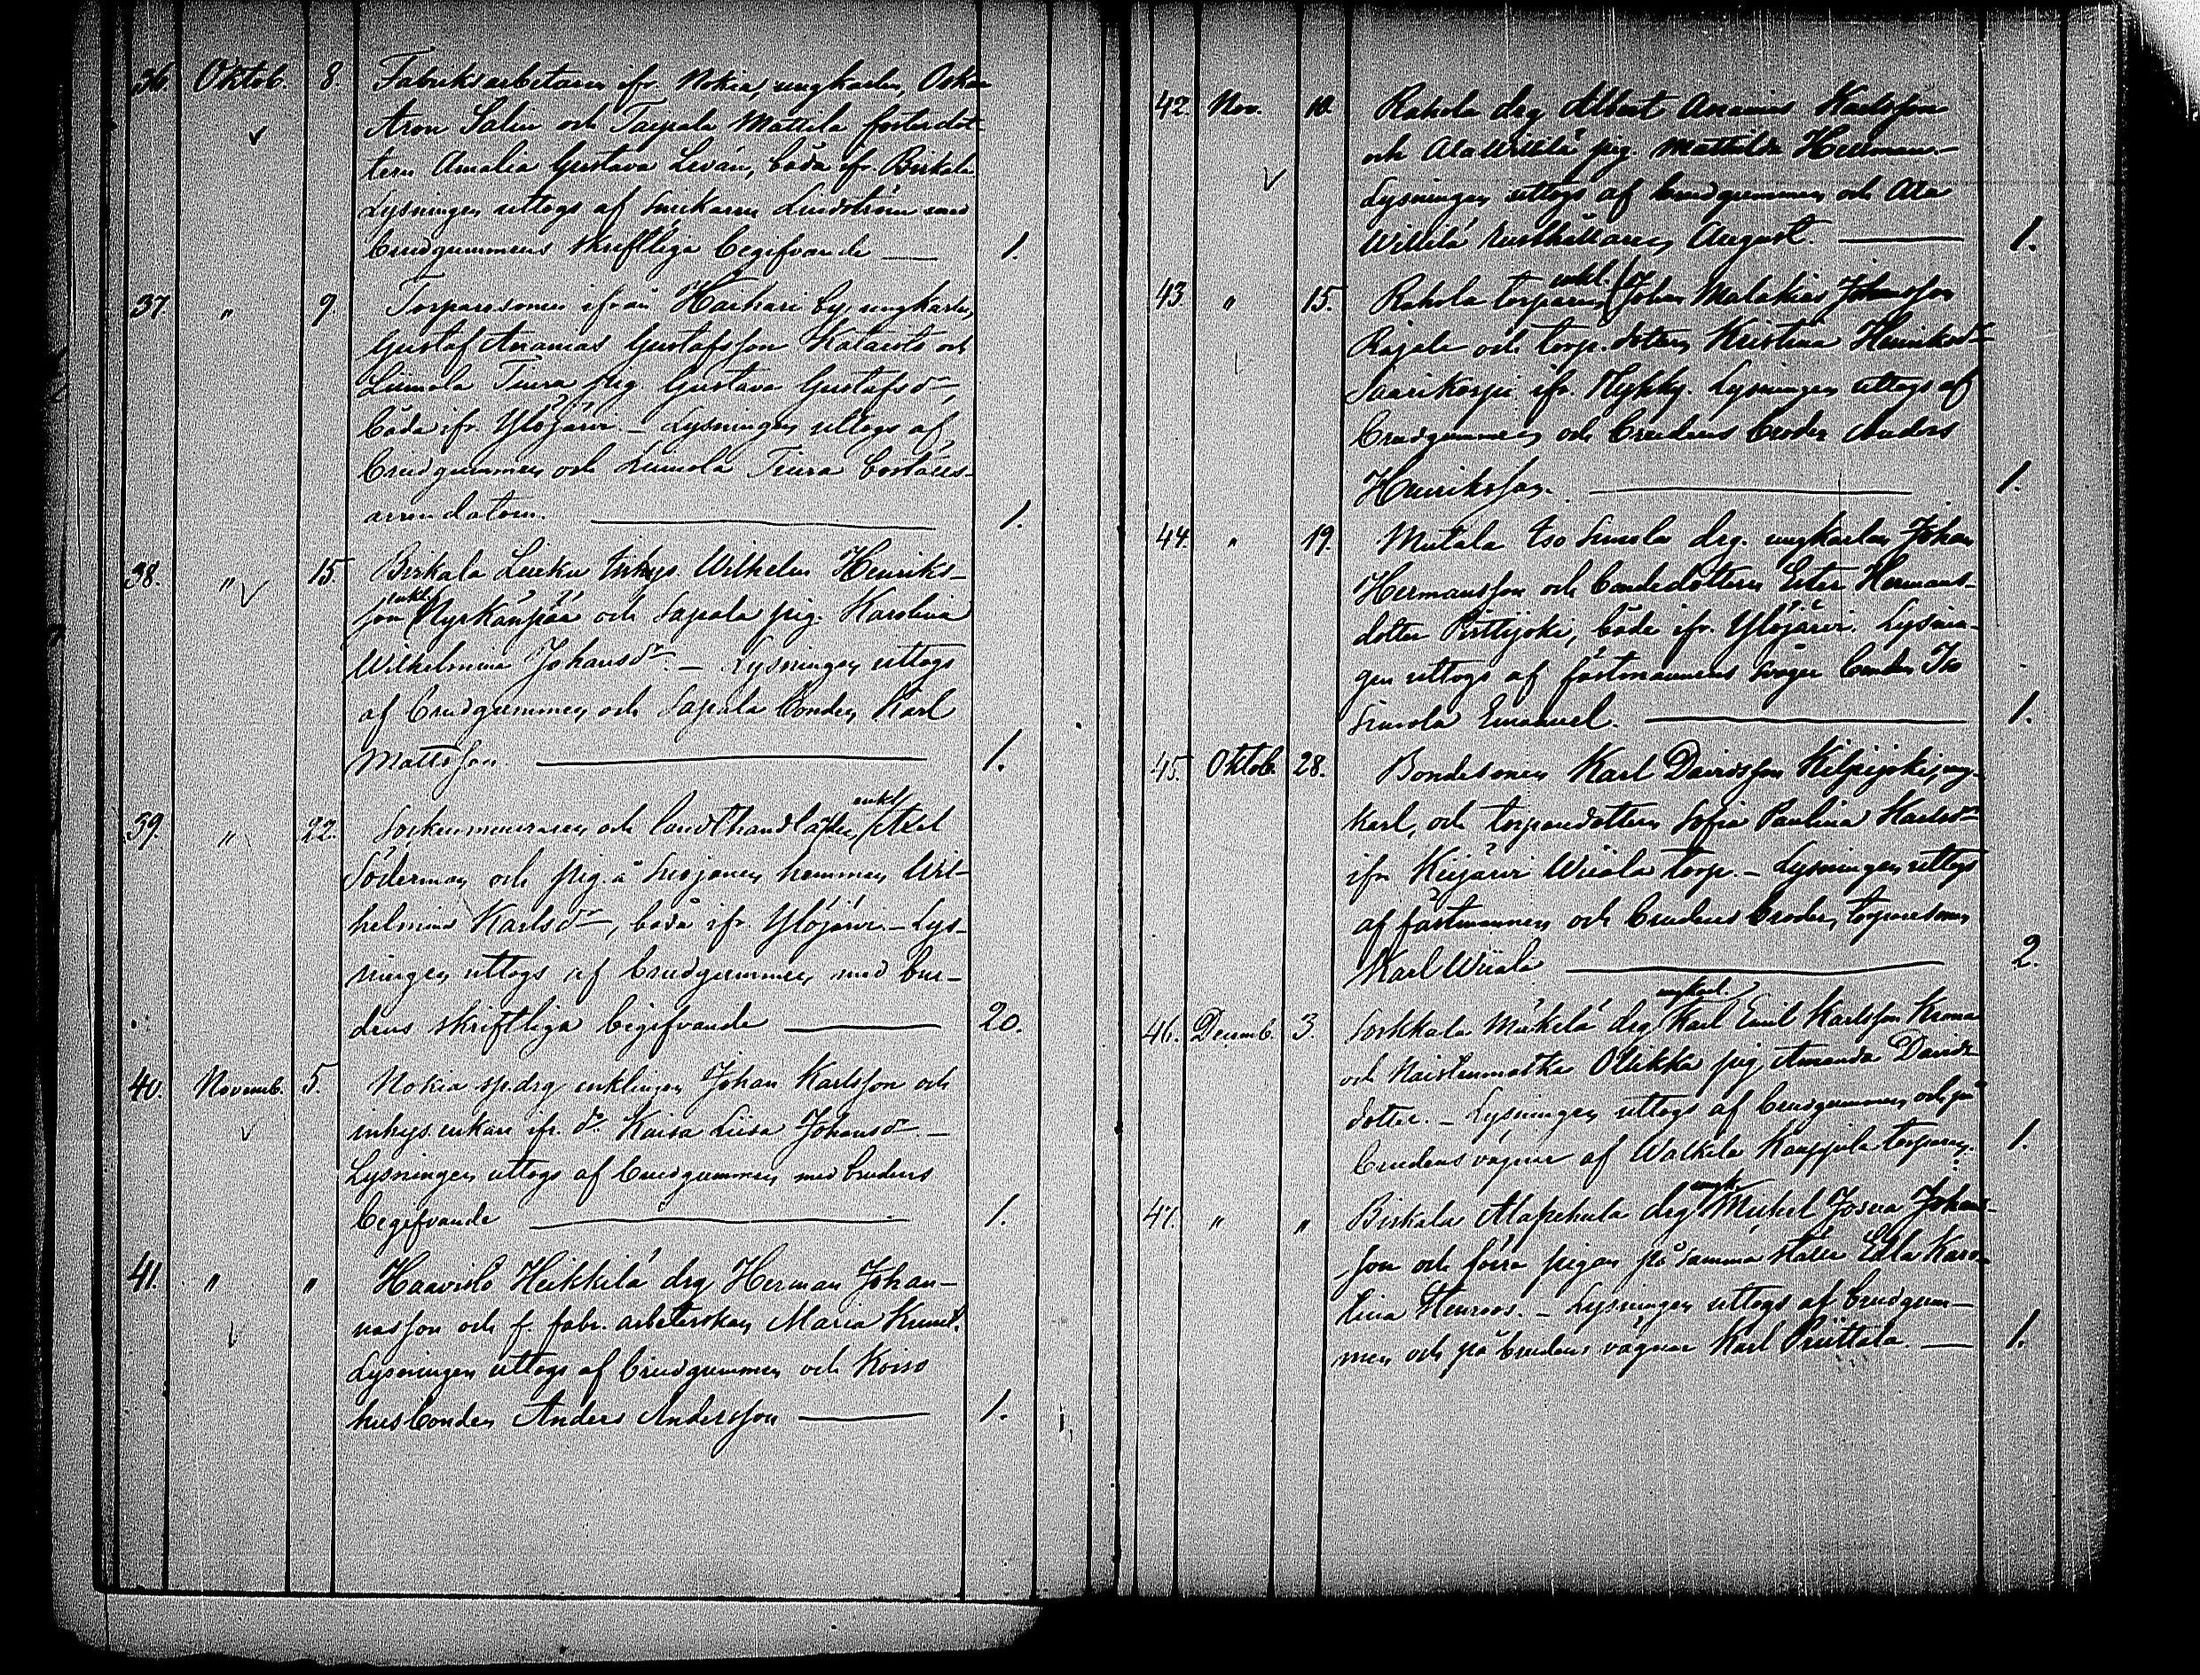 36. Oktob. 8. Fabriksarbetaren ifr. Nokia, ungkarlen, Oskar
Aron Salin och Taipale Mattila fosterdot-
tern Amalia Gustava Levän, båda ifr. Birkala
Lysningen uttogs af Snickaren Lindström med
brudgummens skriftliga begifvande — 1.
37. " 9. Torparesonen ifrån Harhari by, ungkarlen,
Gustaf Ananias Gustafsson Kataisto och
Liimola Tiura pig. Gustava Gustafsdr,
båda ifr. Ylöjärvi. – Lysningen uttogs af
brudgummen och Liimola Tiura boställs-
arrendatorn. — 1.
38. " 15. Birkala Liuku Inhys. Wilhelm Henriks-
son enkl. Nyrkänpää och Sapala pig. Karolina
Wilhelmina Johansdr. – Lysningen uttogs
af brudgummen och Sapala bonden Karl
Mattsson. — 1.
39. " 22. Sockenmuraren och landthandlaren, enkl. Axel
Söderman och pig. å hemman Wil-
helmina Karlsdr, båda ifr. Ylöjärvi. – Lys-
ningen uttogs af brudgummen med bru-
dens skriftliga begifvande — 20.
40. Novemb. 5. Nokia sp.drg enklingen Johan Karlsson och
inhys. enkan ifr. do Kaisa Liisa Johansdr. –
Lysningen uttogs af brudgummen med brudens
begifvande — 1.
41. " " Haavisto Heikkilä drg Herman Johan-
nesson och f. fabr. arbeterskan Maria
Lysningen uttogs af brudgummen och Koiso
husbonden Anders Andersson — 1.
42. Nov. 10. Rahola drg Albert Ananias Karlsson
och Ala Willilä pig. Mathilda Hellman. –
Lysningen uttogs af brudgummen och Ala
Willilä rusthållaren August. — 1.
43. " 15. Rahola torparen enkl. Johan Malakias Johansson
Rajala och torp. dottern Kristina Henriksdr
Saarikorpi ifr. Nykky. Lysningen uttogs af
brudgummen och brudens broder Anders
Henriksson. — 1.
44. " 19. Mutala Iso Simola drg. ungkarlen Johan
Hermansson och bondedottern Ester Hermans-
dotter Pirttijoki, båda ifr. Ylöjärvi. Lysnin-
gen uttogs af fästmannens svåger bonden Iso
Simola Emanuel. — 1.
45. Oktob. 28. Bondesonen Karl Davidsson Kilpijoki, ung-
karl, och torparedottern Sofia Paulina Karlsdr
ifr. Keijärvi Wiiala torp. – Lysningen uttogs
af fästmannen och brudens broder, torparesonen
Karl Wiiala — 2.
46. Decemb. 3. Sorkkala Mäkelä drg ungkarl. Karl Emil Karlsson Kroma
och Naistenmatka Ollikka pig Amanda Davids-
dotter. – Lysningen uttogs af brudgummen och på
brudens vägnar af Walkila Kauppila torparen. 1.
47. " " Birkala Alapehula drg ungk. Mickel Josua Johans-
son och förra pigan på samma ställe Edla Karo-
lina Henroos. – Lysningen uttogs af brudgum-
men och på brudens vägnar Karl Priittala. — 1.